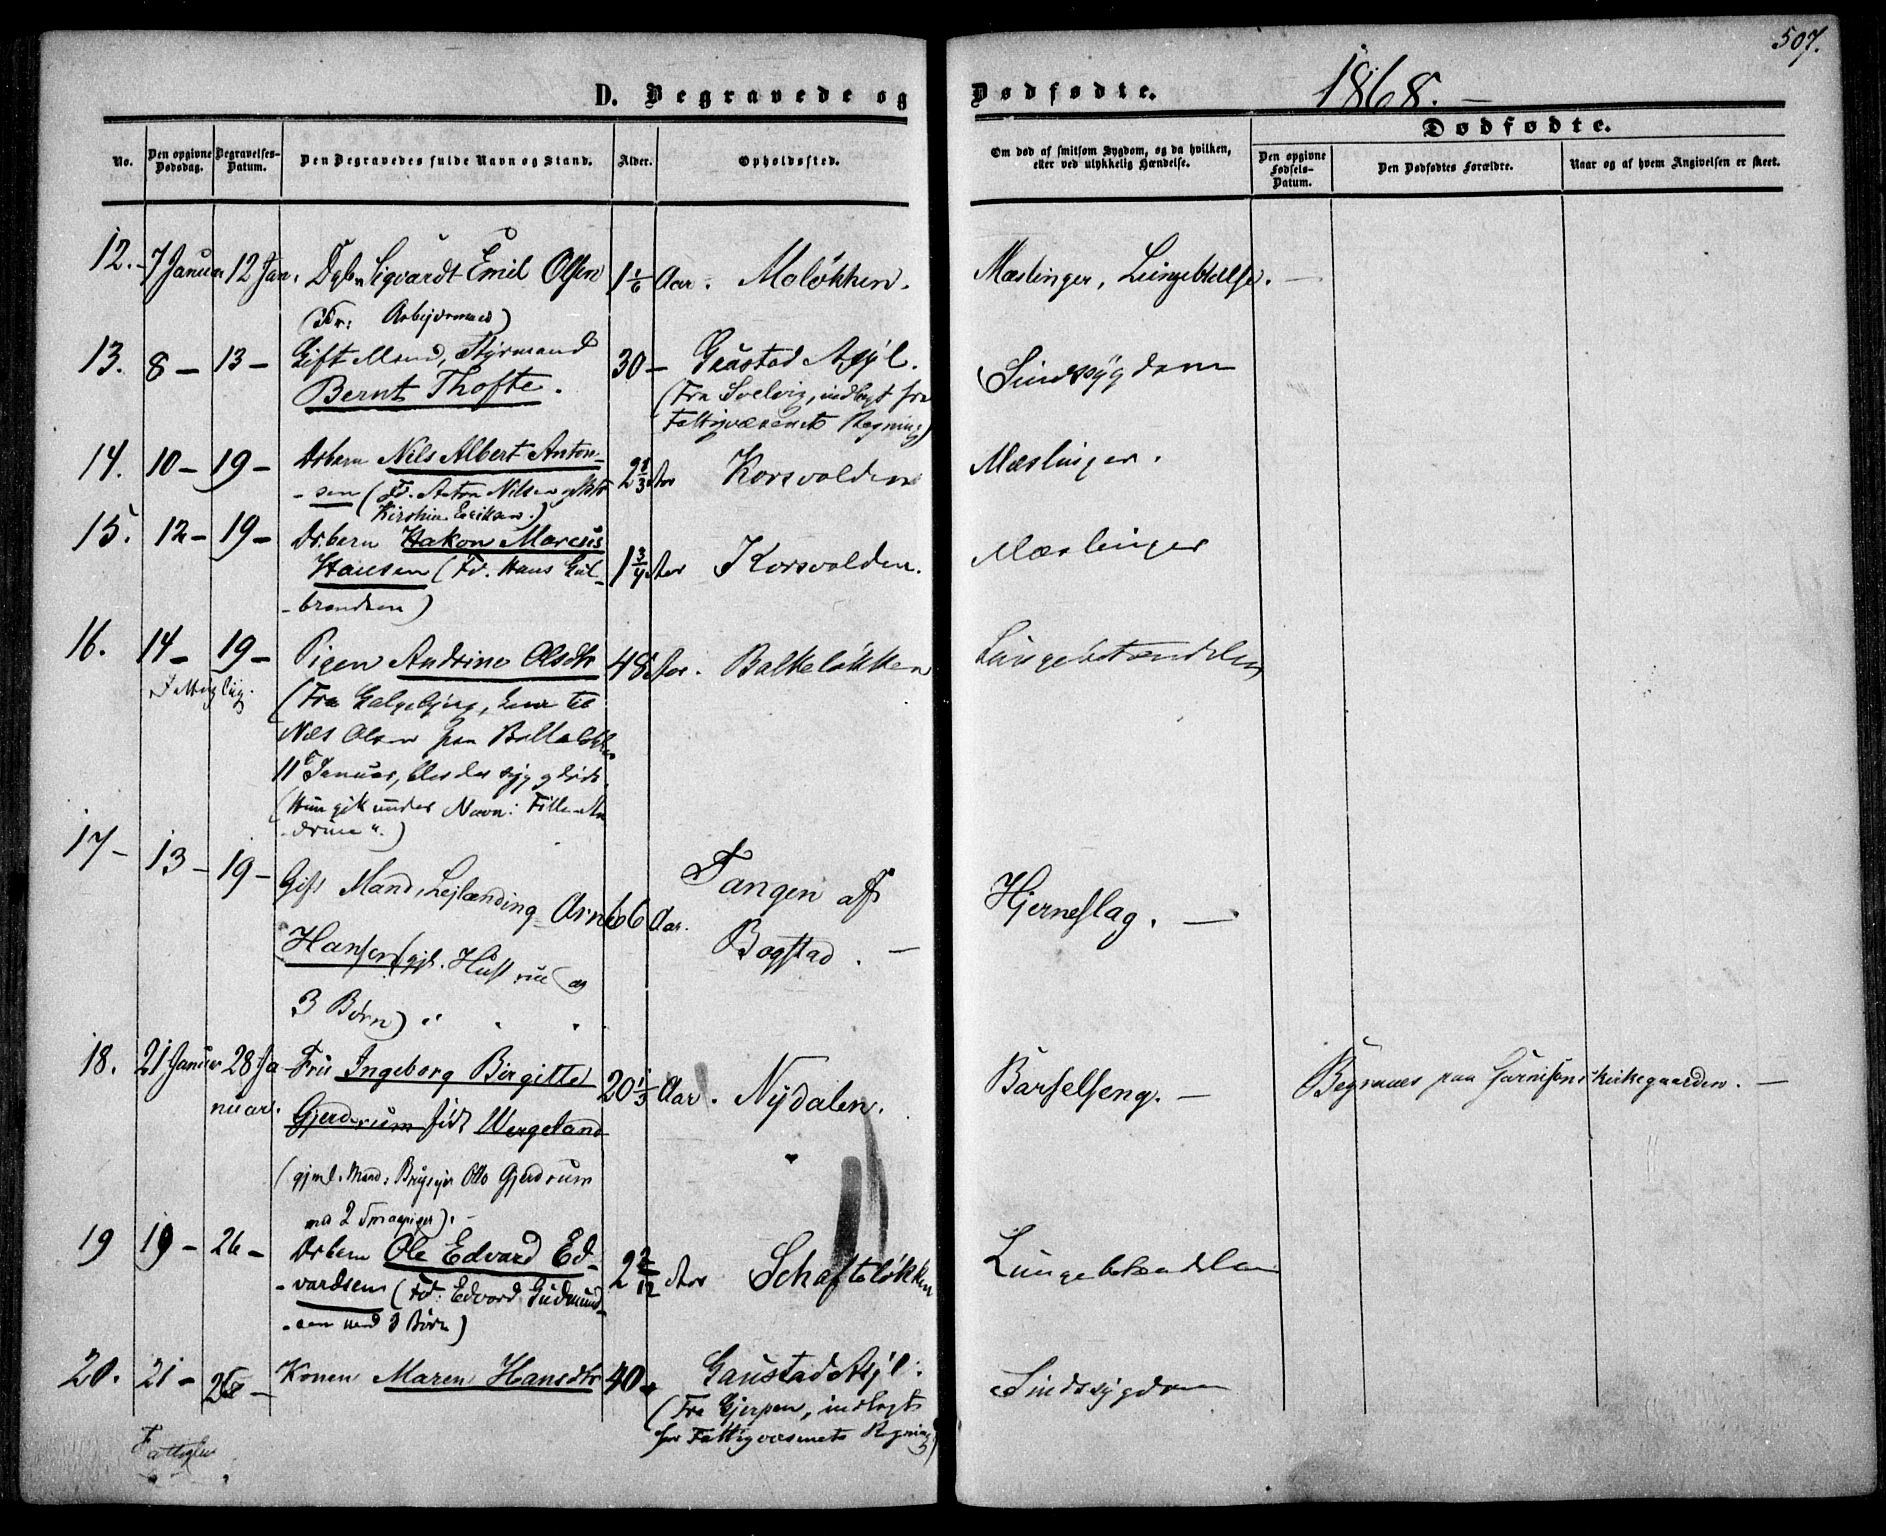 507.
D. Begravede og Dødfødte. 1868.
Dødfødte.
No.
Den opgivne Dødsdag.
Begravelses-Datum.
Den Begravedes fulde Navn og Stand.
Alder.
Opholdssted.
Om død af smitsom Sygdom, og da hvilken,
eller ved ulykkelig Hændelse.
Den opgivne Fødsels-Datum.
Den Dødfødtes Forældre.
Naar og af hvem Angivelsen er skeet.
12. 7 Januar 12 Jan. Sigvardt Emil Olsen 1 1/6 Aar. Moløkken. Mæslinger,
13. 8 – 13 – Gift Mand, Styrmand 30 – Gaustad Asyl. Sindssygdom
Bernt Thofte.
(Fra Svelvig, indlagt for
Fattigvæsenets Regning)
14. 10 – 19 – Drbarn Nils Albert Anton- 2 Aar Korsvolden Mæslinger.
-sen (Fd. Anton Nilsen
Kirstine Eriksen.)
15. 12 – 19 – Drbarn Hakon Marcus 1 3/4 Aar Korsvolden. Mæslinger
Hansen (Fd. Hans Gul-
-brandsen)
16. 14 – 19 – Pigen Andrine Olsdtr 48 Aar. Balkeløkken Lungebetændelse
Fattiglig.
(Fra kom til
Nils Olsen paa
11 Januar, blev der syg og døde.
(Hun gik under Navn: Fille-An
-drine".)
17 – 13 – 19 – Gift Mand, Lejlænding Arne 66 Aar. Tangen af Hjerneslag. –
Hansen (gjl. Hustrue og Bogstad. –
3 Børn)
18. 21 Januar 28 Ja Fru Ingeborg Birgitte 20 1/3 Aar. Nydalen. Barselseng. – Begraves paa Garnisons kirkegaarden. –
nuar. Gjerdrum født Wergeland
(gjml. Mand: Otto Gjerdrum
med 2 Smaapiger). –
19 19 – 26 – Drbarn Ole Edvard Ed- 2 2/12 Aar Schafteløkken Lungebetændelse
-vardsen (Fd: Edvard Gudmund-
-sen med 3 Børn)
20. 21 – 26 – Konen Maren Hansdtr 40 – Gaustad Asyl. Sindssygdom
(Fra Gjerpen, indlagt
for Fattigvæsenets Regning)
Fattiglig